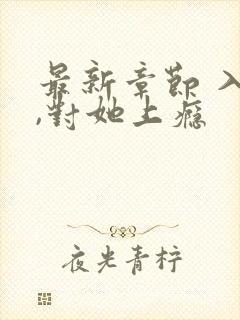 最新章節 入
,對她上瘾
夜光青柠